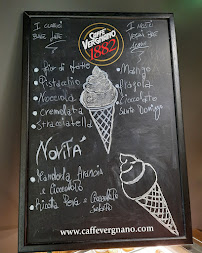 I CLASSICI
BASE LATTE
I NOSTRI
CAFFÈ
VERGNANO
1882
• Fior di latte
• Pistacchio
• Nocciola
• Cremolata
• Stracciatella
• Mango
• Fragola
• Cioccolato
Santo Domingo
NOVITÀ
• Mandorla Arancia
e Cioccolato
• Ricotta Pera e Cioccolato
www.caffevergnano.com